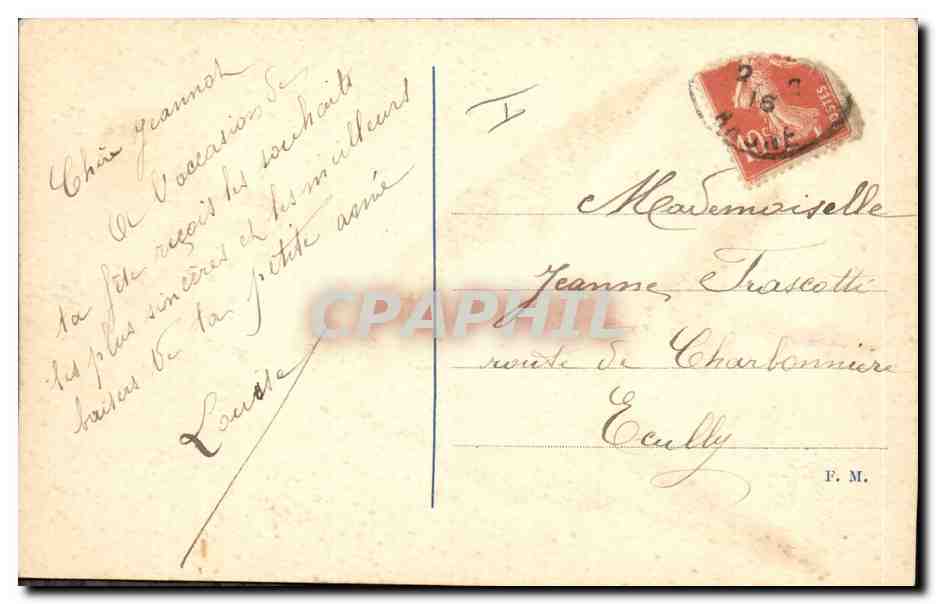 Chère Jeannot
A l'occasion de
ta fête reçois les souhaits
les plus sincères et les meilleurs
baisers de ta petite amie
Louise
I
16
RHONE
10c
POSTES
Mademoiselle
Jeanne Trascotti
route de Charbonnière
Ecully
F. M.
CPAPHIL